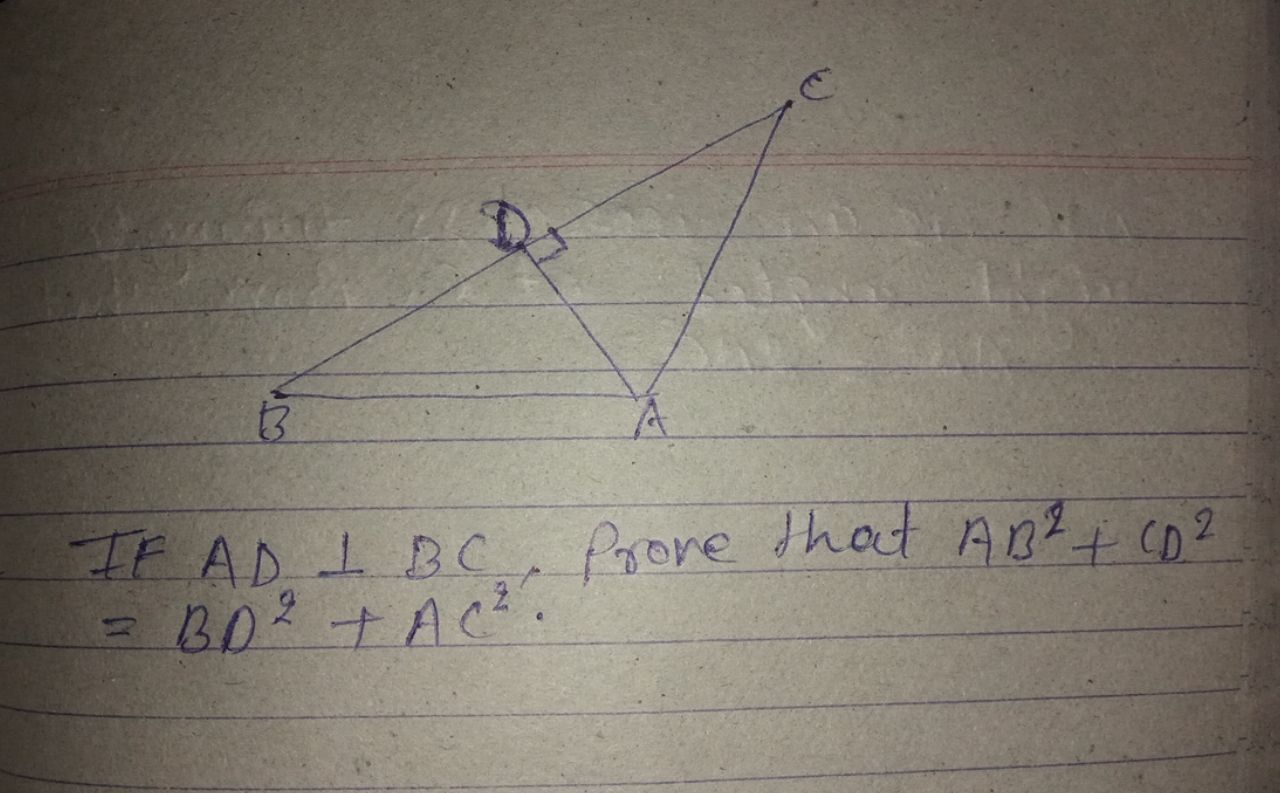 C
D
B
A
IF AD ⊥ BC, Prove that AB² + CD²
= BD² + AC².